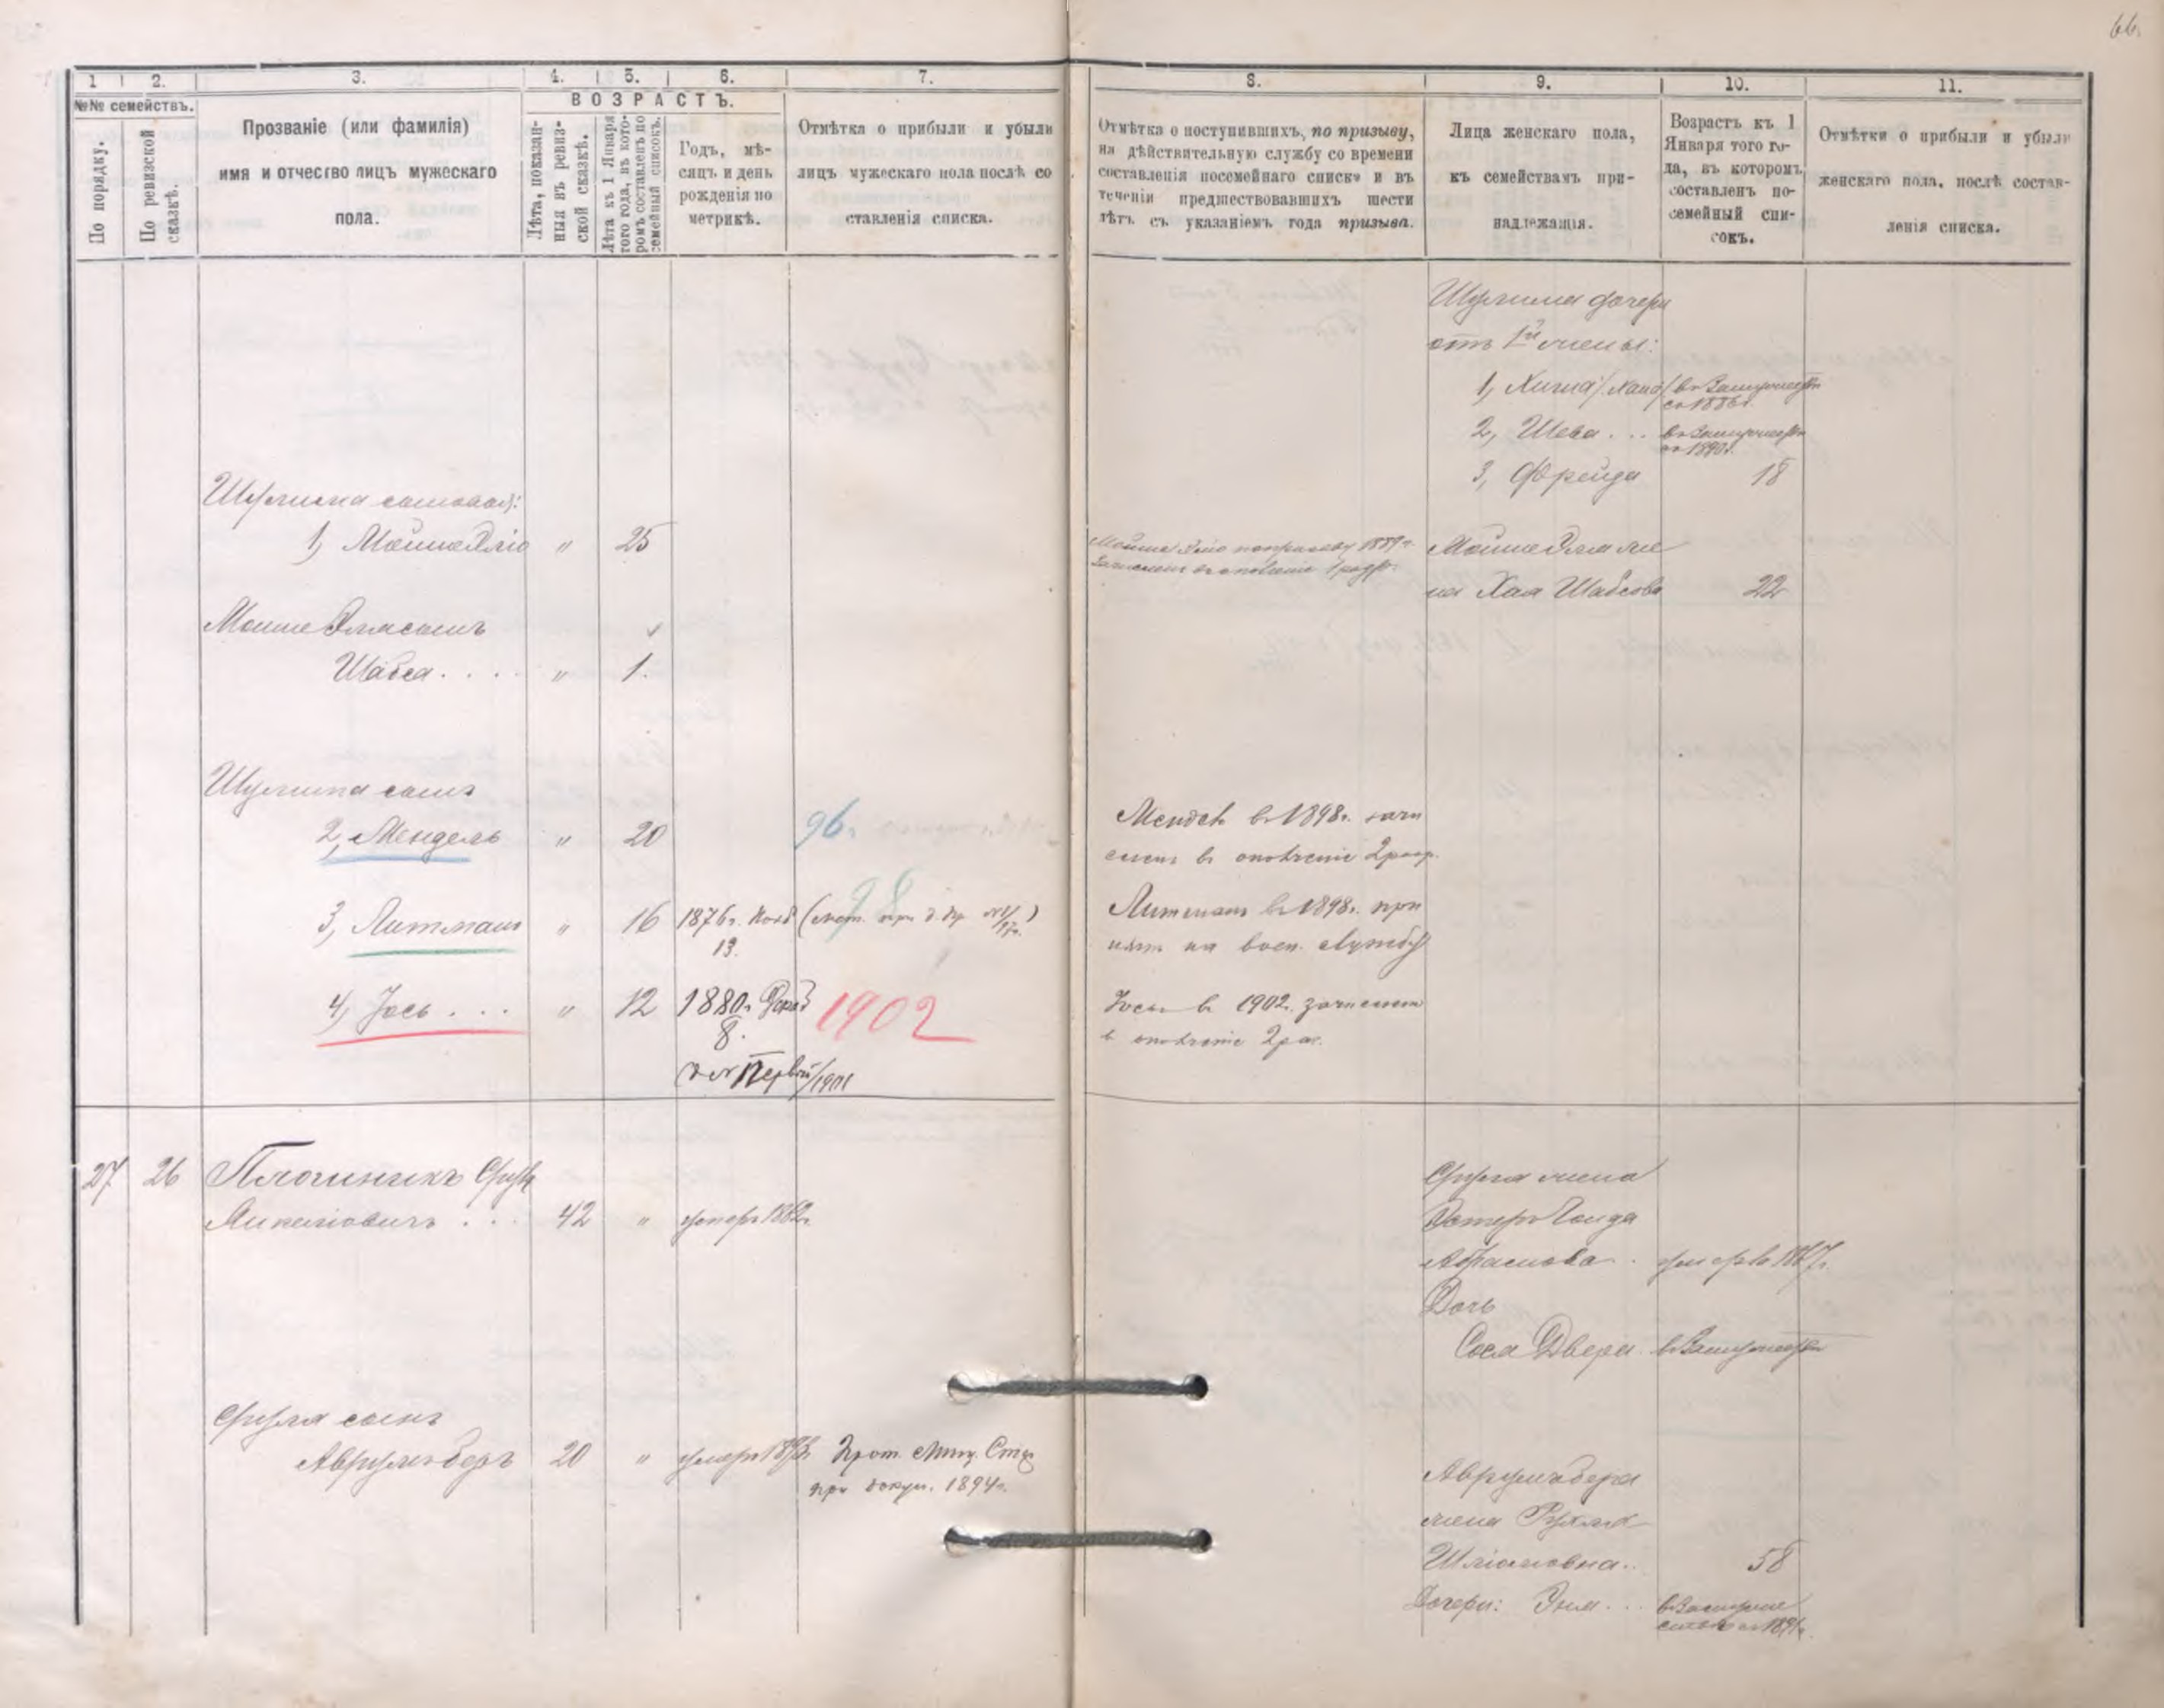 66.
1
2.
3.
4.
5.
6.
7.
№№ семействъ.
По порядку.
По ревизской сказкѣ.
Прозваніе (или фамилія)
имя и отчество лицъ мужескаго
пола.
ВОЗРАСТЪ.
Лѣта, показан-
ныя въ ревиз-
ской сказкѣ.
Лѣта къ 1 Января
того года, въ кото-
ромъ составленъ по
семейный списокъ.
Годъ, мѣ-
сяцъ и день
рожденія по
метрикѣ.
Отмѣтка о прибыли и убыли
лицъ мужескаго пола послѣ со
ставленія списка.
8.
9.
10.
11.
Отмѣтка о поступившихъ, по призыву,
на дѣйствительную службу со времени
составленія посемейнаго списка и въ
теченіи предшествовавшихъ шести
лѣтъ съ указаніемъ года призыва.
Лица женскаго пола,
къ семействамъ при-
надлежащія.
Возрастъ къ 1
Января того го-
да, въ которомъ
составленъ по-
семейный спи-
сокъ.
Отмѣтки о прибыли и убыли
женскаго пола, послѣ состав-
ленія списка.
Шулима дочери
отъ 1й жены:
1, /Хана/ въ замужествѣ
съ 1886г.
2, Шева . . . въ замужествѣ
съ 1890г.
3, Фрейда 18
Шулима сыновья:
1, Мойше Эліо " 25
Мойше Эліо по призыву 1889г.
зачисленъ въ ополченіе 1 разр.
Мойше Эліа же
на Хая Шабсова 22
Мойше Эліа сынъ
Шабса . . . . " 1.
Шулима сынъ
2, Мендель " 20 96.
Мендель въ 1898г. зачи
сленъ въ ополченіе 2 разр.
3, Литманъ " 16 1876г. Нояб
13.
98
Литманъ въ 1898г. при
нятъ на воен. службу
4, Іось . . . " 12 1880г. Декаб
8.
1902
Іось въ 1902г. зачисленъ
въ ополченіе 2 раз.
первый/1901
27 26 Плотникъ Сруль
. . . 42 " умеръ 1862г.
Сруля жена
Эстеръ
Абрамова . умерла 1867г.
Дочь
Сося Двера въ замужествѣ
Сруля сынъ
Аврумъ-беръ 20 "
Прот. Мищ. Стар
при докум. 1894г.
Аврумъ-бера
жена Рухля
58
Дочери: . . . въ замуже
ствѣ съ